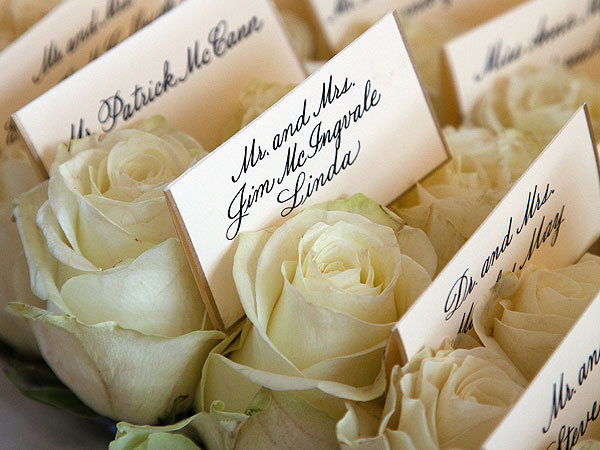 Mr. and Mrs.
Mr. Patrick McCann
Mr. and Mrs.
Jim McIngvale
Linda
Miss Annie
Dr. and Mrs.
May
Mr. an
Steve